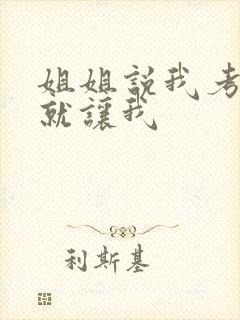 姐姐説我考
就讓我
利斯基